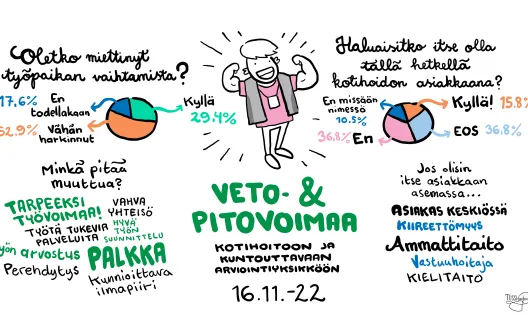 Oletko miettinyt
työpaikan vaihtamista?
17.6% En
todellakaan
Kyllä
29.4%
52.9% Vähän
harkinnut
Minkä pitää
muuttua?
TARPEEKSI
TYÖVOIMAA!
VAHVA
YHTEISÖ
TYÖTÄ TUKEVIA
PALVELUITA
HYVÄ
TYÖN
SUUNNITTELU
arvostus
PALKKA
Perehdytys
Kunnioittava
ilmapiiri
VETO- &
PITOVOIMAA
KOTIHOITOON JA
KUNTOUTTAVAAN
ARVIOINTIYKSIKKÖÖN
16.11.-22
Haluaisitko itse olla
tällä hetkellä
kotihoidon asiakkaana?
En missään
nimessä
10.5%
Kyllä! 15.8
36.8% En
EOS 36.8%
Jos olisin
itse asiakkaan
asemassa...
ASIAKAS KESKIÖSSÄ
KIIREETTÖMYYS
Ammattitaito
Vastuuhoitaja
KIELITAITO